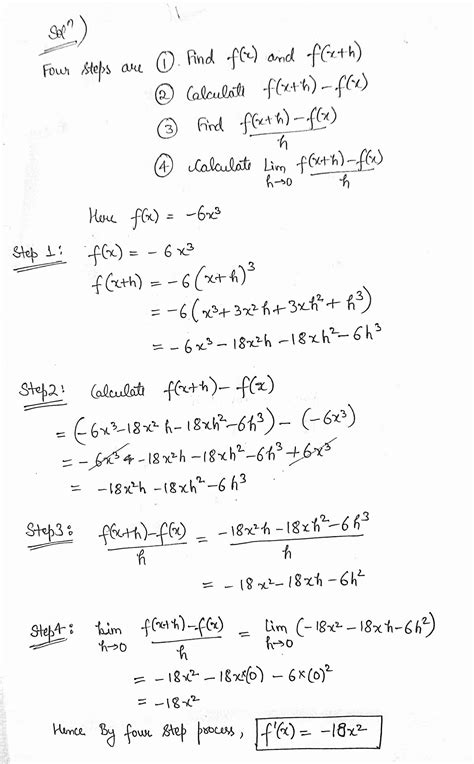 Solⁿ)
Four steps are ① Find f(x) and f(x+h)
② Calculate f(x+h) - f(x)
③ Find f(x+h) - f(x) / h
④ Calculate Lim h→0 f(x+h) - f(x) / h
Here f(x) = -6x³
Step 1: f(x) = - 6x³
f(x+h) = -6(x+h)³
= -6(x³+3x²h+3xh²+h³)
= -6x³-18x²h-18xh²-6h³
Step2: Calculate f(x+h) - f(x)
= (-6x³-18x²h-18xh²-6h³) - (-6x³)
= -6x³+-18x²h-18xh²-6h³+6x³
= -18x²h-18xh²-6h³
Step3: f(x+h)-f(x) / h = -18x²h-18xh²-6h³ / h
= -18x²-18xh-6h²
Step4: Lim h→0 f(x+h)-f(x) / h = Lim h→0 (-18x²-18xh-6h²)
= -18x²-18x*(0)-6*(0)²
= -18x²
Hence By four step process, f'(x) = -18x²